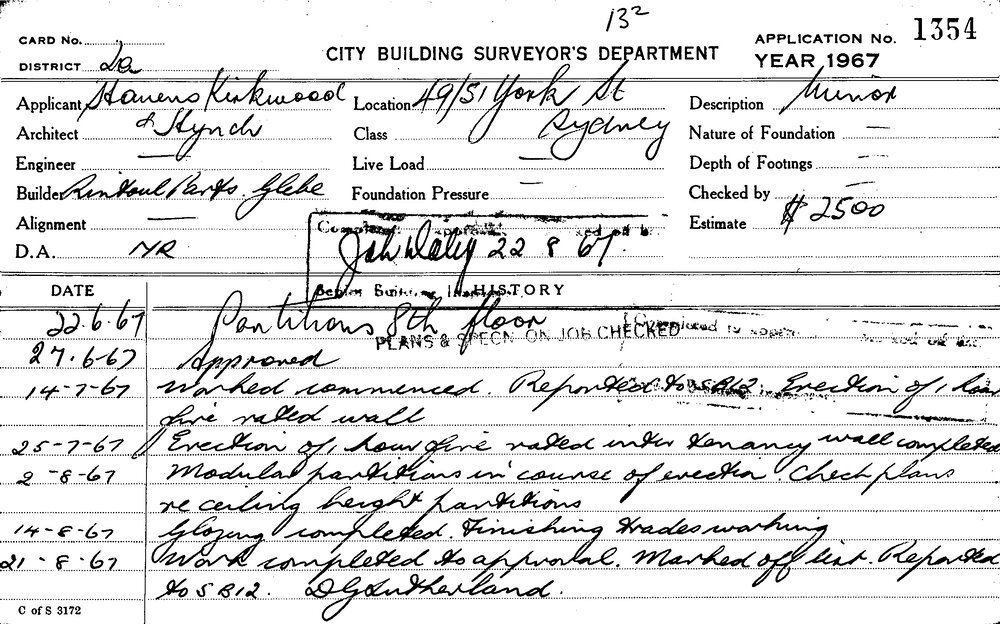 13²
CARD No.
APPLICATION No. 1354
DISTRICT 2a
CITY BUILDING SURVEYOR'S DEPARTMENT
YEAR 1967
Applicant Kirkwood
Location 49/51 York St
Description Minor
Architect & Hynch
Class Sydney
Nature of Foundation —
Engineer —
Live Load —
Depth of Footings —
Builder Rintoul Glebe
Foundation Pressure —
Checked by —
Alignment —
Estimate $2500
D.A. NR
22 8 67.
DATE
HISTORY
22.6.67 Partitions 8th floor
PLANS & SPECN ON JOB CHECKED
27.6.67 Approved
14-7-67 Worked commenced. Reported to SB12. Erection of 1 hour
fire rated wall
25-7-67 Erection of 1 hour fire rated inter tenancy wall completed
2-8-67 Modular partitions in course of erection. Check plans
re ceiling height partitions
14-8-67 Glazing completed. Finishing trades working
21-8-67 Work completed to approval. Marked off list. Reported
to SB12. DGSutherland.
C of S 3172